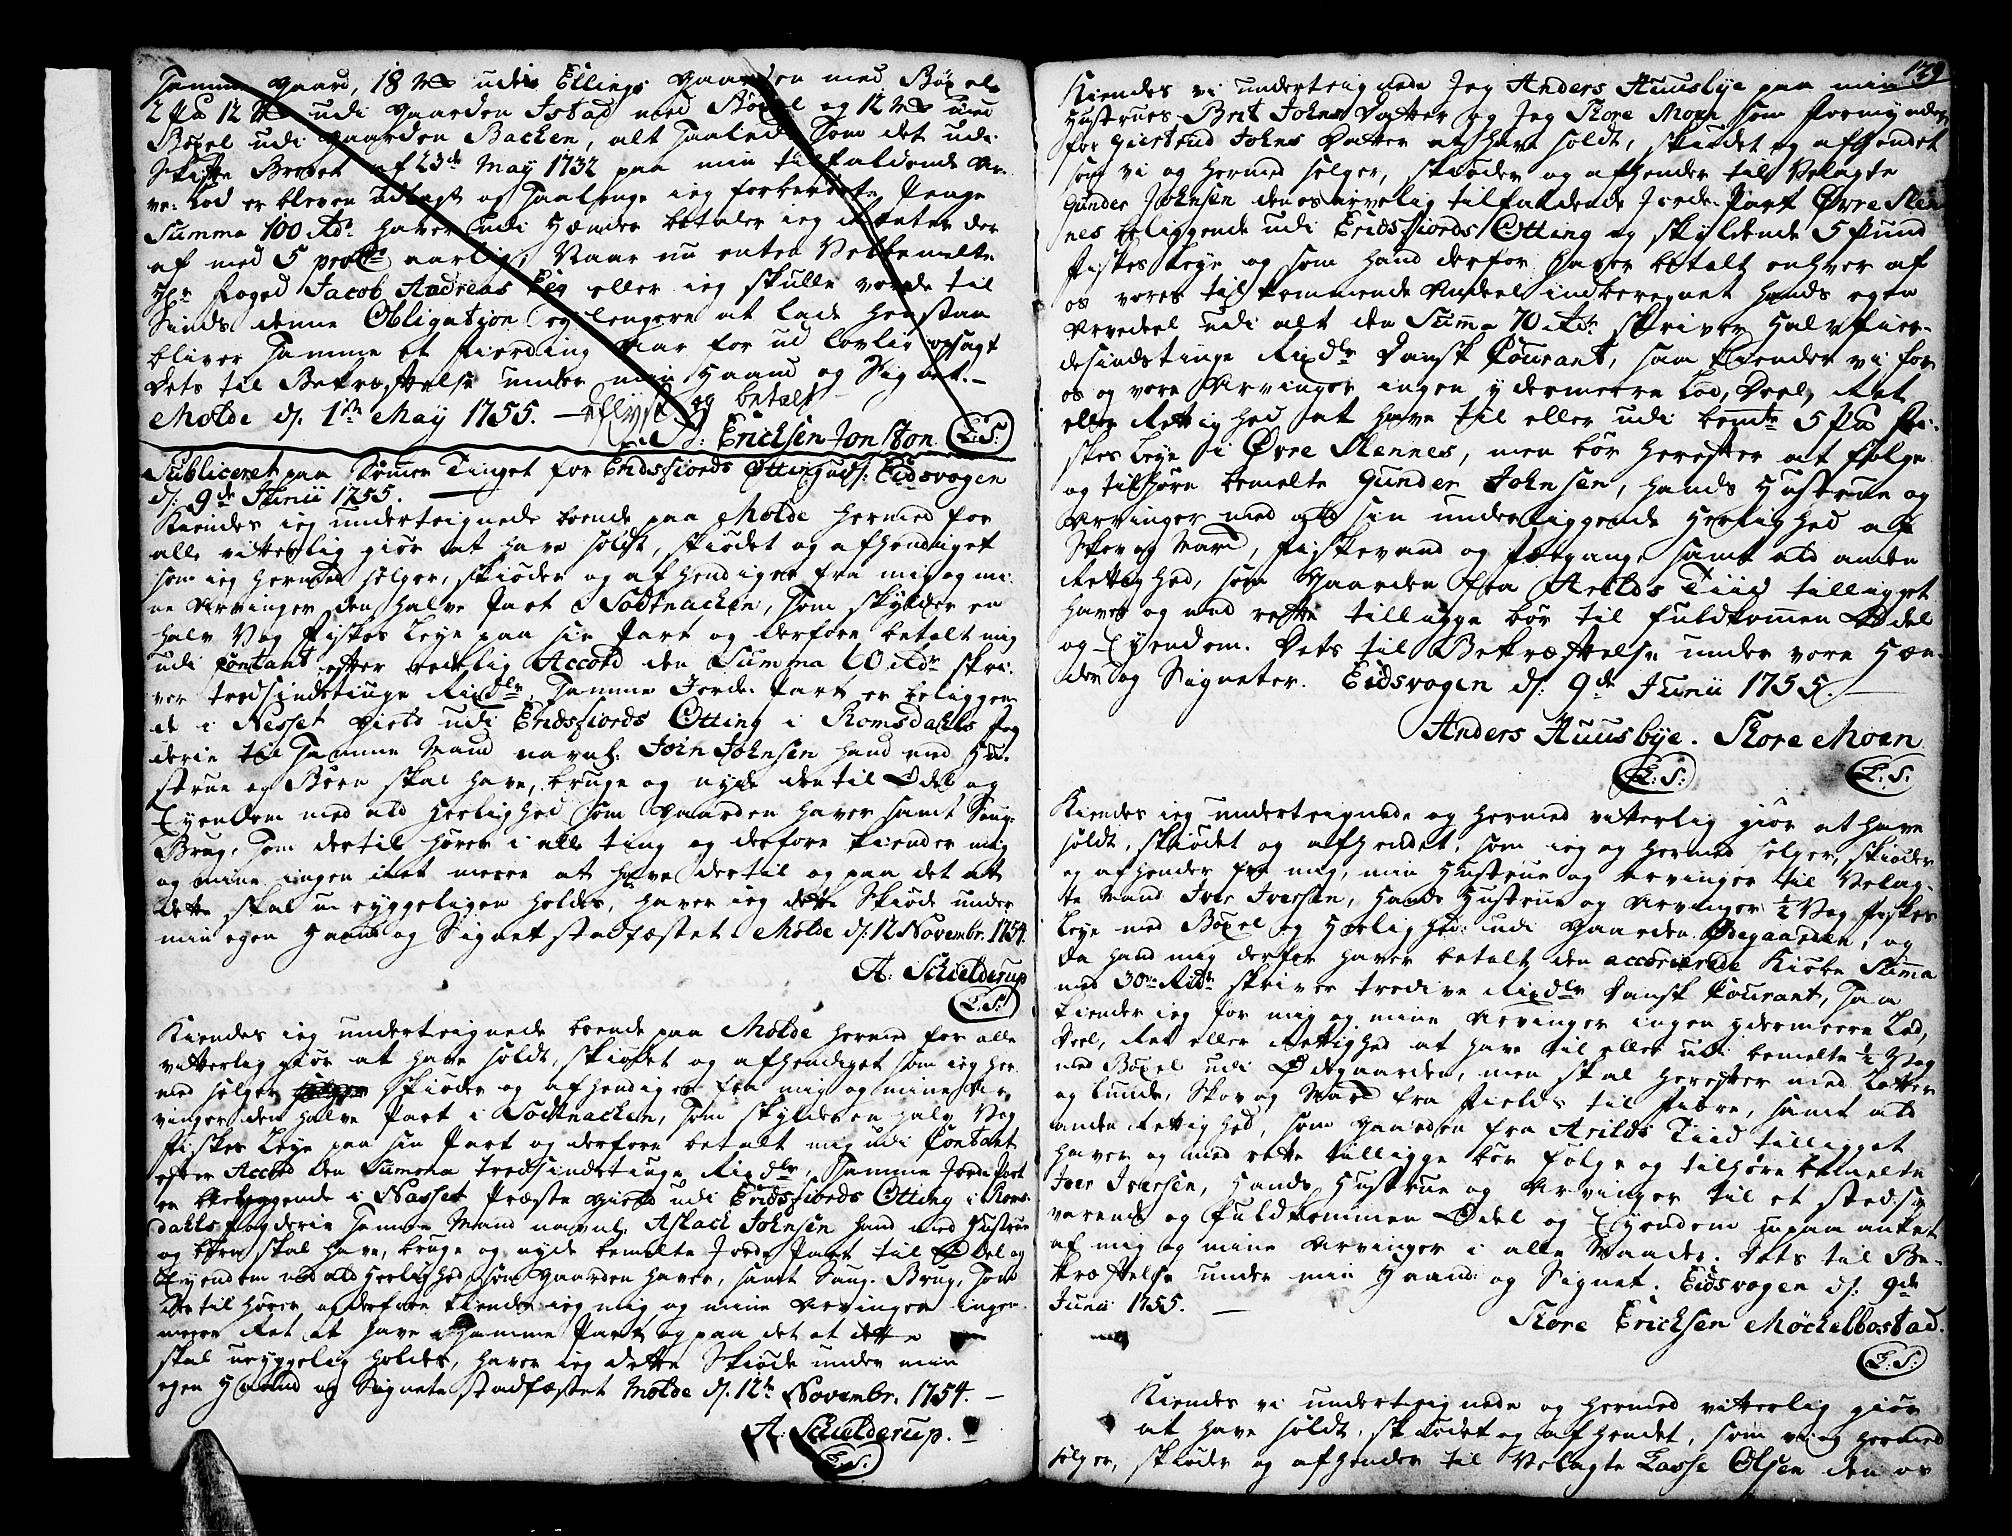 Samme Gaard, 18 mk udi Ellings Gaarden med Bøxel
2 pd 12 mk udi Gaarden Istad med Bøxel og 12 mk med
Bøxel udi Gaarden Backen, alt saaledes som det udi
Skifte Brevet af 23de May 1732 paa min tilfaldende Ar-
ve Lod er bleven udlagt og saalenge ieg forberørte Penge
Summa 100 Rdr haver udi Hænder betaler ieg Renter der
af med 5 procto aarlig, Naar nu enten Velbemelte
Hr Foged Jacob Andreas Eeg eller ieg skulle vorde til
Sinds denne Obligation ey lengere at lade henstaa
bliver samme et fierding Aar for ud lovlig opsagt
Dets til Bekræftelse under min Haand og Signet. -
Molde d. 1ste May 1755. - aflyst og betalt
Ericksen Jonston (L.S.)
Publiceret paa Sommer Tinget for Eridsfiords Otting udj: Eidsvogen
d: 9de Junii 1755.
Kiendes ieg undertegnede boende paa Molde hermed for
alle vitterlig giør at have soldt, skiødet og afhendiget
som ieg hermed selger, skiøder og afhendiger fra mig og mi-
ne Arvinger den halve Part i Sodtnacken, som skylder en
halv Vog Fiskes Leye paa sin Part og derfore betalt mig
udi Contant efter redelig Accord den Summa 60 Rdr skri-
ver tredsindstiuge Rixdlr, samme Jorde Part er beliggen-
de i Nesset Gield udi Eridsfiords Otting i Romsdahls fog-
derie til samme Mand navnl: Join Johnsen hand med Hu-
strue og Børn skal have, bruge og nyde den til Odel og
Eyendom med ald Herlighed som Gaarden haver samt Saug-
Brug, som dertil hører i alle ting og derfore kiender mig
og mine ingen Ret meere at have dertil og paa det at
dette skal uryggeligen holdes, haver ieg dette Skiøde under
min egen Haand og Signet stadfæstet Molde d: 12 Novembr. 1754.
A: Schielderup
(L.S.)
Kiendes ieg undertegnede boende paa Molde hermed for alle
vitterlig giør at have soldt, skiødet og afhendiget som ieg her-
med selger skiøder og afhendiger fra mig og mine Ar-
vinger den halve Part i Sodtnacken, som skylder en halv Vog
Fiskes Leye paa sin Part og derfore betalt mig udi Contant
efter Accord den Summa tredsindstiuge Rixdlr, samme Jorde Part
er beliggende i Nesset Præste Gield udi Eridsfiords Otting i Roms-
dahls Fogderie samme Mand navnl: Aslack Johnsen hand med Hustrue
og børn skal have, bruge og nyde bemelte Jorde Part til Odel og
Eyendom med ald Herlighed, som Gaarden haver, samt Saug-Brug, som
der til hører og derfore kiender ieg mig og mine Arvinger ingen
meere Ret at have i samme Part og paa det at dette
skal uryggelig holdes, haver ieg dette Skiøde under min
egen Haand og Signete stadfæstet Molde d. 12te Novembr. 1754. -
A: Schielderup. -
(L.S.)
139
Kiendes vi undertegnede Jeg Anders Huusbye paa min
Hustrues Brit Johns Datter og Jeg Tore Moen som Formynder
for Giertrud Johns Datter at have soldt, skiødet og afhendet
som vi og hermed selger, skiøder og afhender til Velagte
Gunder Johnsen den os arvelig tilfaldende Jorde Part Øvre Sten-
nes beliggende udi Eridsfiords Otting og skyldende 5 Pund
Fiskes Leye og som hand derfor haver betalt enhver af
os vores tilkommende Andeel indberegnet hands egen
Arvedeel udi alt den Summa 70 Rdr skriver halvfier-
desindstiuge Rixdlr Dansk Courant, saa kiender vi for
os og vore Arvinger ingen ydermeere Lod, Deel, Ret
eller Rettighed at have til eller udi bemte 5 pd Fi-
skes Leye i Øvre Stennes, men bør herefter at følge
og tilhøre bemelte Gunder Johnsen, hands Hustrue og
Arvinger med ald sin underliggende Herlighed af
Skov og Mark, Fiskevand og Fægange samt ald anden
Rettighed, som Gaarden fra Arilds Tiid tilligget
haver og med rette tilligge bør til fuldkommen Oddel
og Eyendom. Dets til Bekræftelse under vore Hæn-
der og Signeter. Eidsvogen d: 9de Junii 1755. -
Anders Huusbye. Tore Moen
(L:S:) (L.S.)
Kiendes ieg undertegnede og hermed vitterlig giør at have
soldt, skiødet og afhendet, som ieg og hermed selger, skiøder
og afhender fra mig, min Hustrue og Arvinger til Velag-
te Mand Iver Iversen, hands Hustrue og Arvinger 1/2 Vog Fiskes
Leye med Bøxel og Herlighed udi Gaarden Ødegaarden, og
da hand mig derfor haver betalt den accorderede Kiøbe Summa
med 30 Rdr skriver tredive Rixdlr Dansk Courant, saa
kiender ieg for mig og mine Arvinger ingen ydermeere Lod,
Deel, Ret eller Rettighed at have til eller udi bemelte 1/2 Vog
med Bøxel udi Ødegaarden, men skal herefter med Lotter
og Lunde, Skov og Mark fra Fields til Fiære, samt ald
anden Rettighed, som Gaarden fra Arilds Tiid tilligget
haver og med rette tilligge bør følge og tilhøre bemelte
Iver Iversen, hands Hustrue og Arvinger til et stedse-
varende og fuldkommen Odel og Eyendom upaa anket
af mig og mine Arvinger i alle Maader. Dets til Be-
kræftelse under min Haand og Signet. Eidsvogen d: 9de
Junii 1755. -
Tore Ericksen Møckelbostad.
(L:S:)
Kiendes vi undertegnede og hermed vitterlig giør
at have soldt, skiødet og afhendet, som vi og hermed
selger, skiøder og afhender til Velagte Lasse Olsen den os